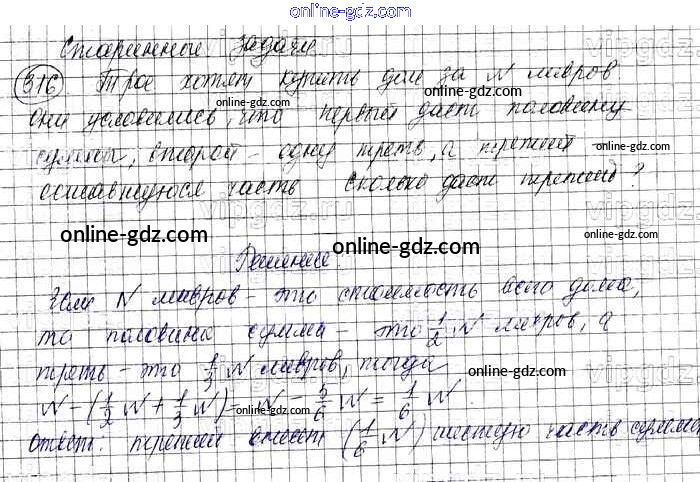 online-gdz.com
Старинные задачи
316 Трое хотят купить дом за N ливров.
Они условились, что первый даст половину
суммы, второй - одну треть, а третий
оставшуюся часть Сколько даст третий?
Решение:
Если N ливров - это стоимость всего дома,
то половина суммы - это 1/2 N ливров, а
треть - это 1/3 N ливров, тогда
N - (1/2 N + 1/3 N) = N - 5/6 N = 1/6 N.
Ответ: третий внесет (1/6 N) шестую часть суммы
online-gdz.com
online-gdz.com
online-gdz.com
online-gdz.com
online-gdz.com
online-gdz.com
online-gdz.com
online-gdz.com
online-gdz.com
vipgdz.ru